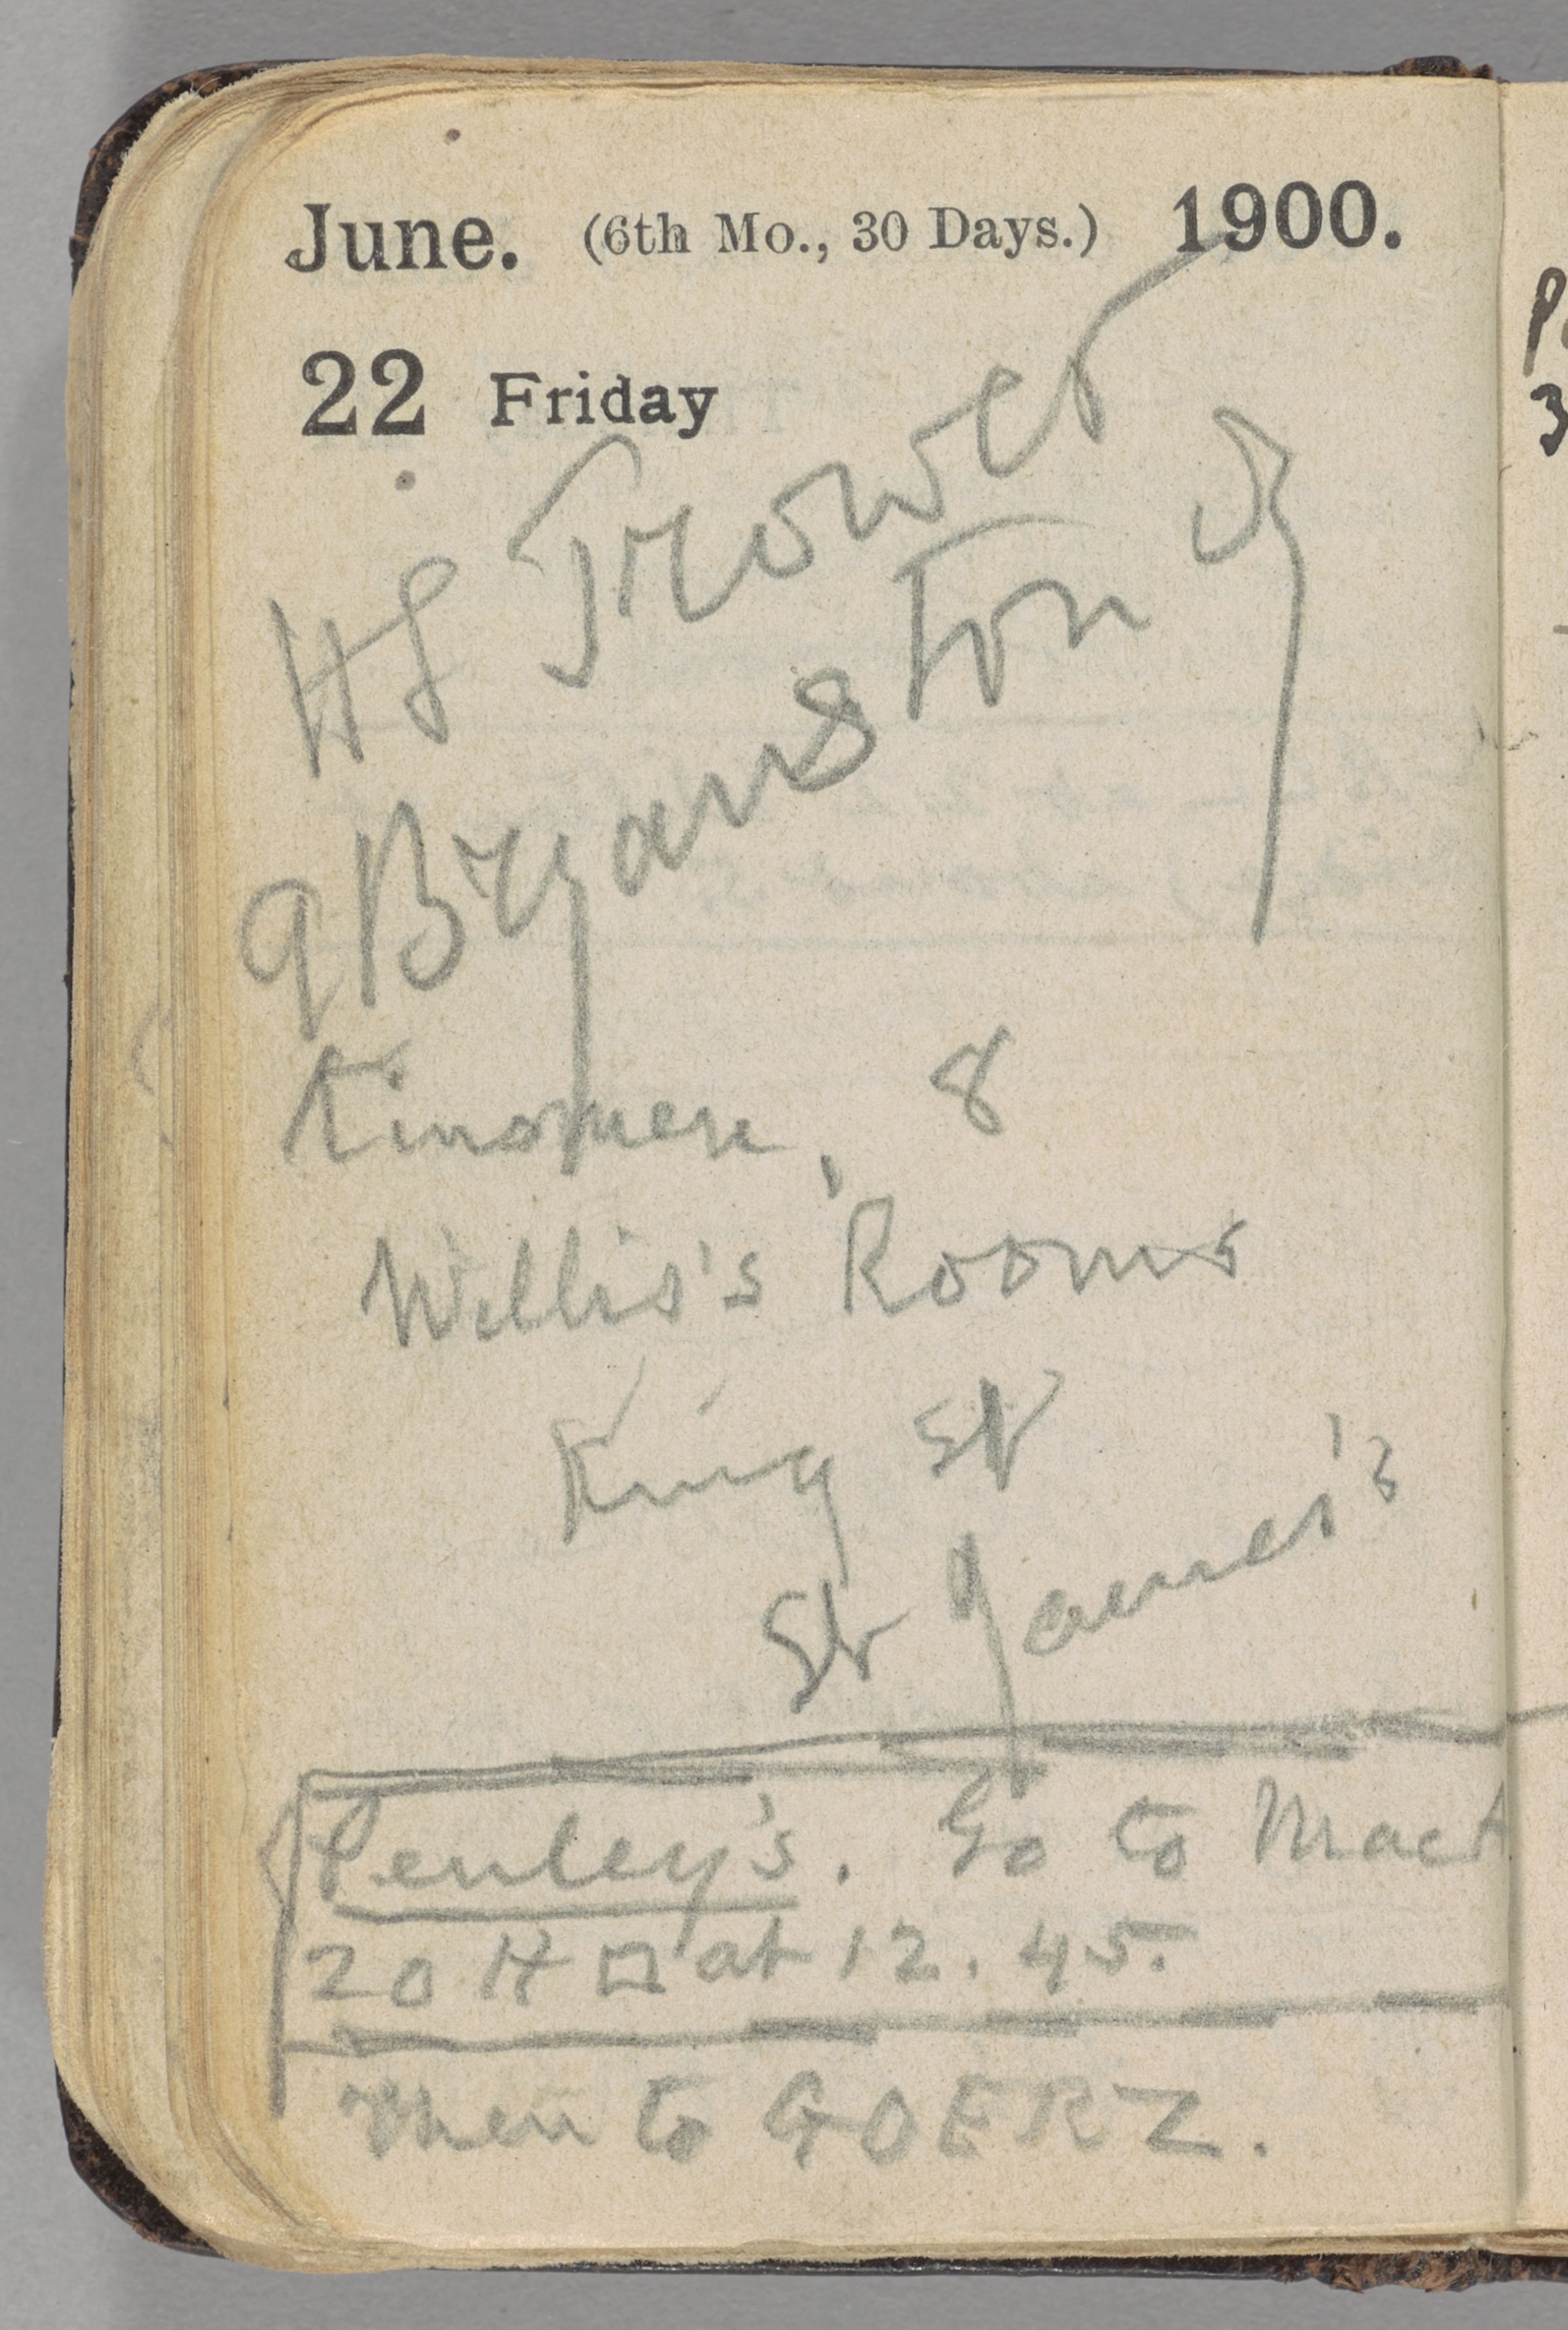 June. (6th Mo., 30 Days.) 1900.
22 Friday
HS Trower
9 Bryanston Sq
Kinsmen, 8
Willis's Rooms
King St
St James's
Penley's. Go to Mact
20 H □ at 12.45.
Then to GOERZ.